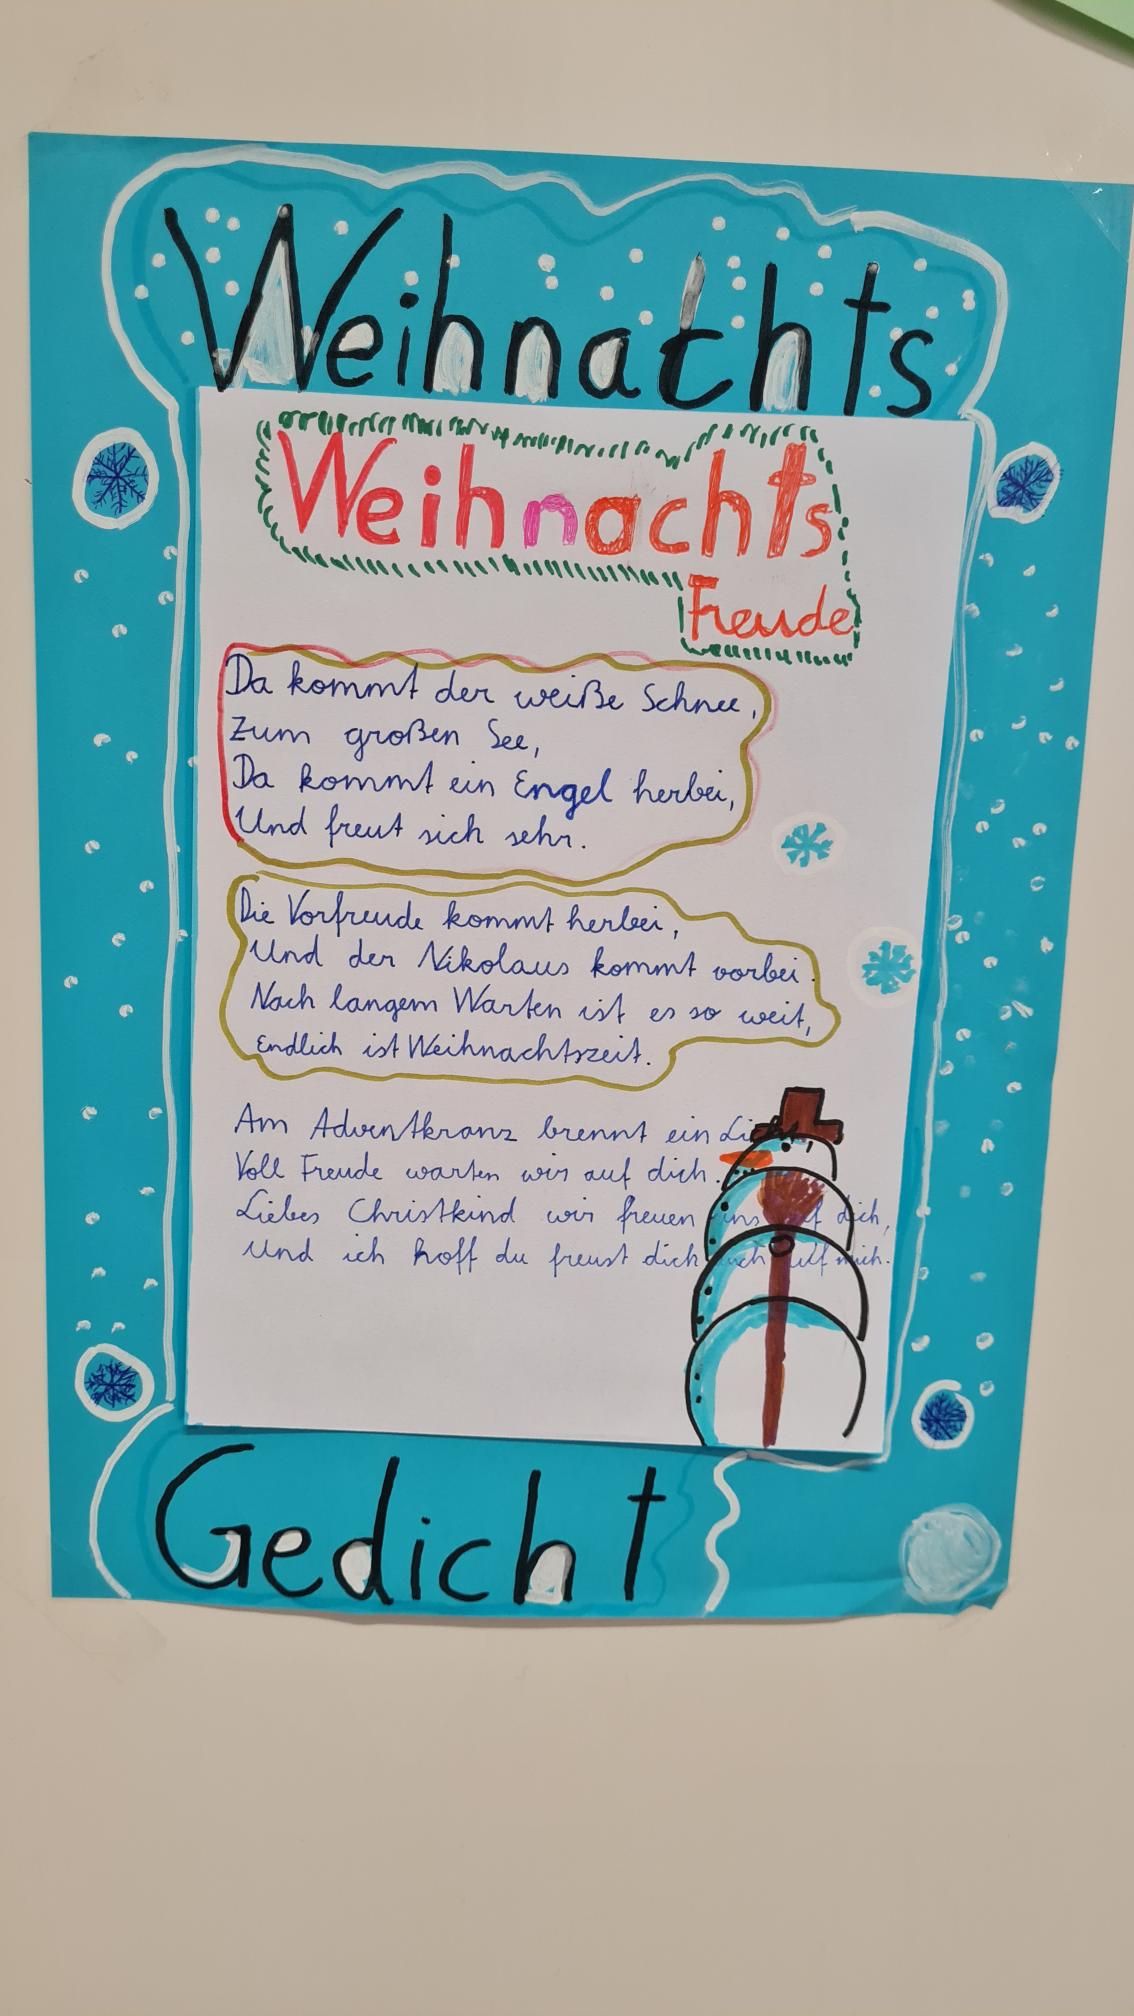 Weihnachts
Weihnachts
Freude
Da kommt der weiße Schnee,
Zum großen See,
Da kommt ein Engel herbei,
Und freut sich sehr.
Die Vorfreude kommt herbei,
Und der Nikolaus kommt vorbei.
Nach langem Warten ist es so weit,
Endlich ist Weihnachtszeit.
Am Adventkranz brennt ein Licht,
Voll Freude warten wir auf dich.
Liebes Christkind wir freuen uns auf dich,
Und ich hoff du freust dich auch auf mich.
Gedicht